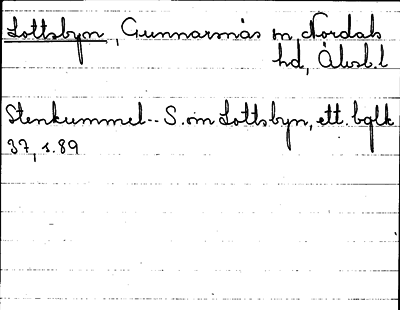 Lottsbyn, Gunnarsnäs sn Nordals
hd, Älvsb.l
Stenkummel -- S. om Lottsbyn, ett. bglk
37, s. 89